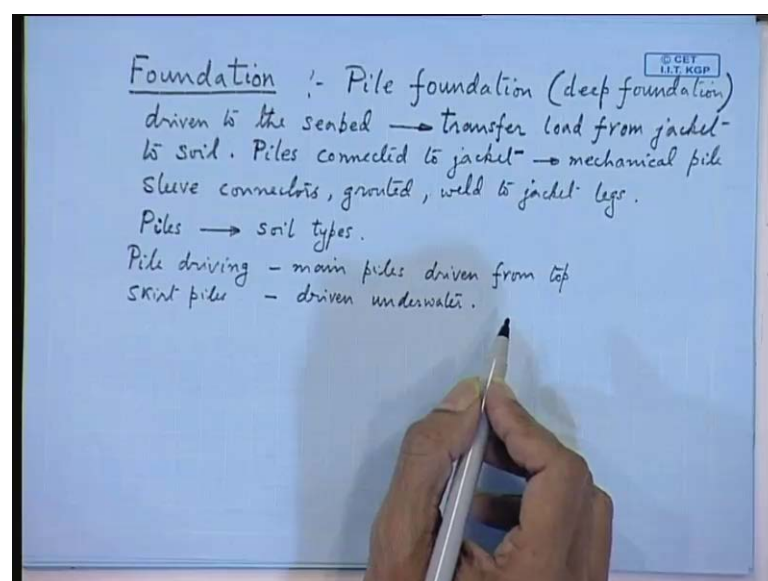 © CET
I.I.T. KGP
Foundation :- Pile foundation (deep foundation)
driven to the seabed → transfer load from jacket
to soil. Piles connected to jacket → mechanical pile
sleeve connectors, grouted, weld to jacket legs.
Piles → soil types.
Pile driving - main piles driven from top
skirt piles - driven underwater.